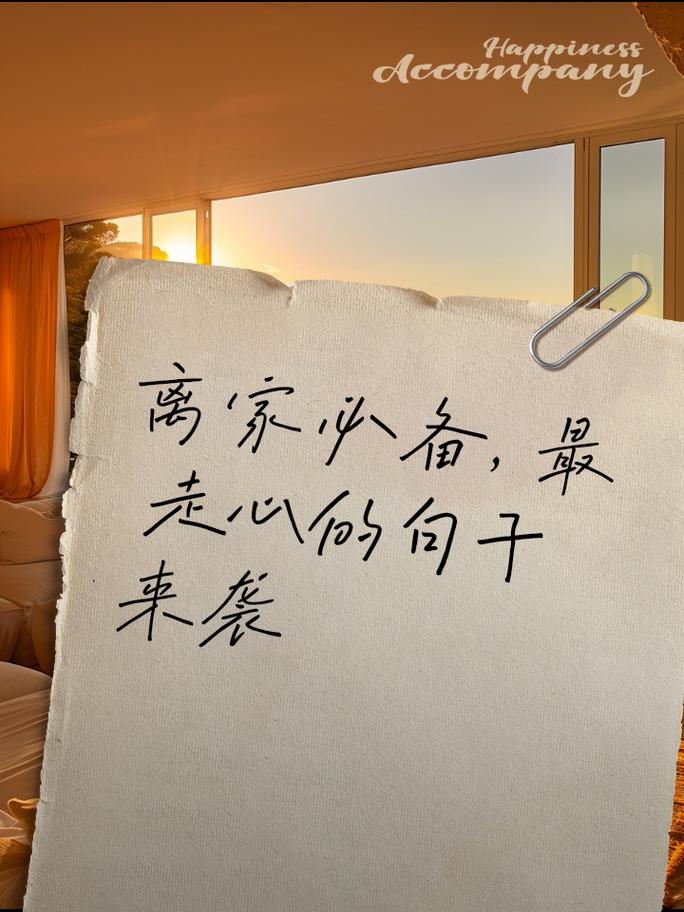 Happiness
Accompany
离家必备,最
走心的句子
来袭